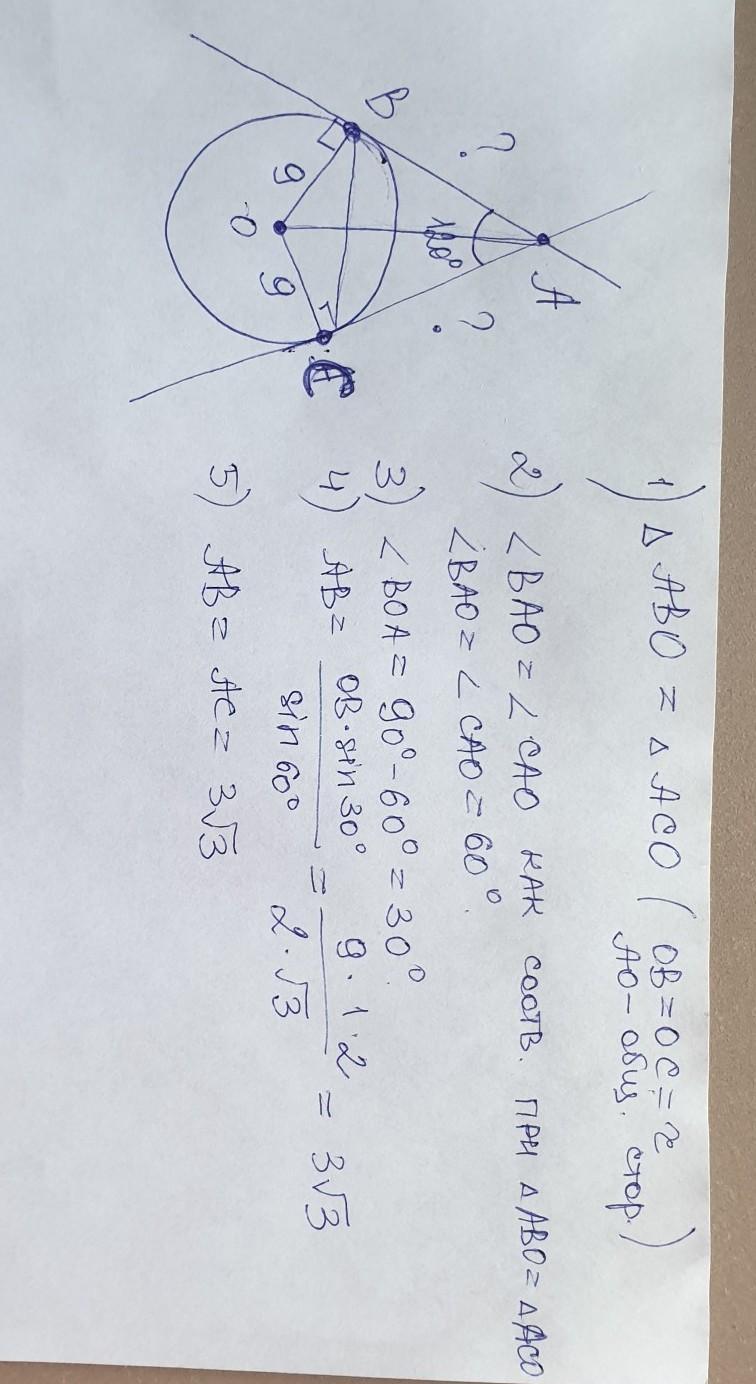 B
?
A
9
O
120°
9
?
C
1) Δ ABO = Δ ACO ( OB = OC = r
AO - общ. стор. )
2) ∠BAO = ∠CAO как соотв. при ΔABO = ΔACO
∠BAO = ∠CAO = 60°.
3) ∠BOA = 90° - 60° = 30°.
4) AB = OB · sin 30° / sin 60° = 9 · 1 · 2 / 2 · √3 = 3√3
5) AB = AC = 3√3